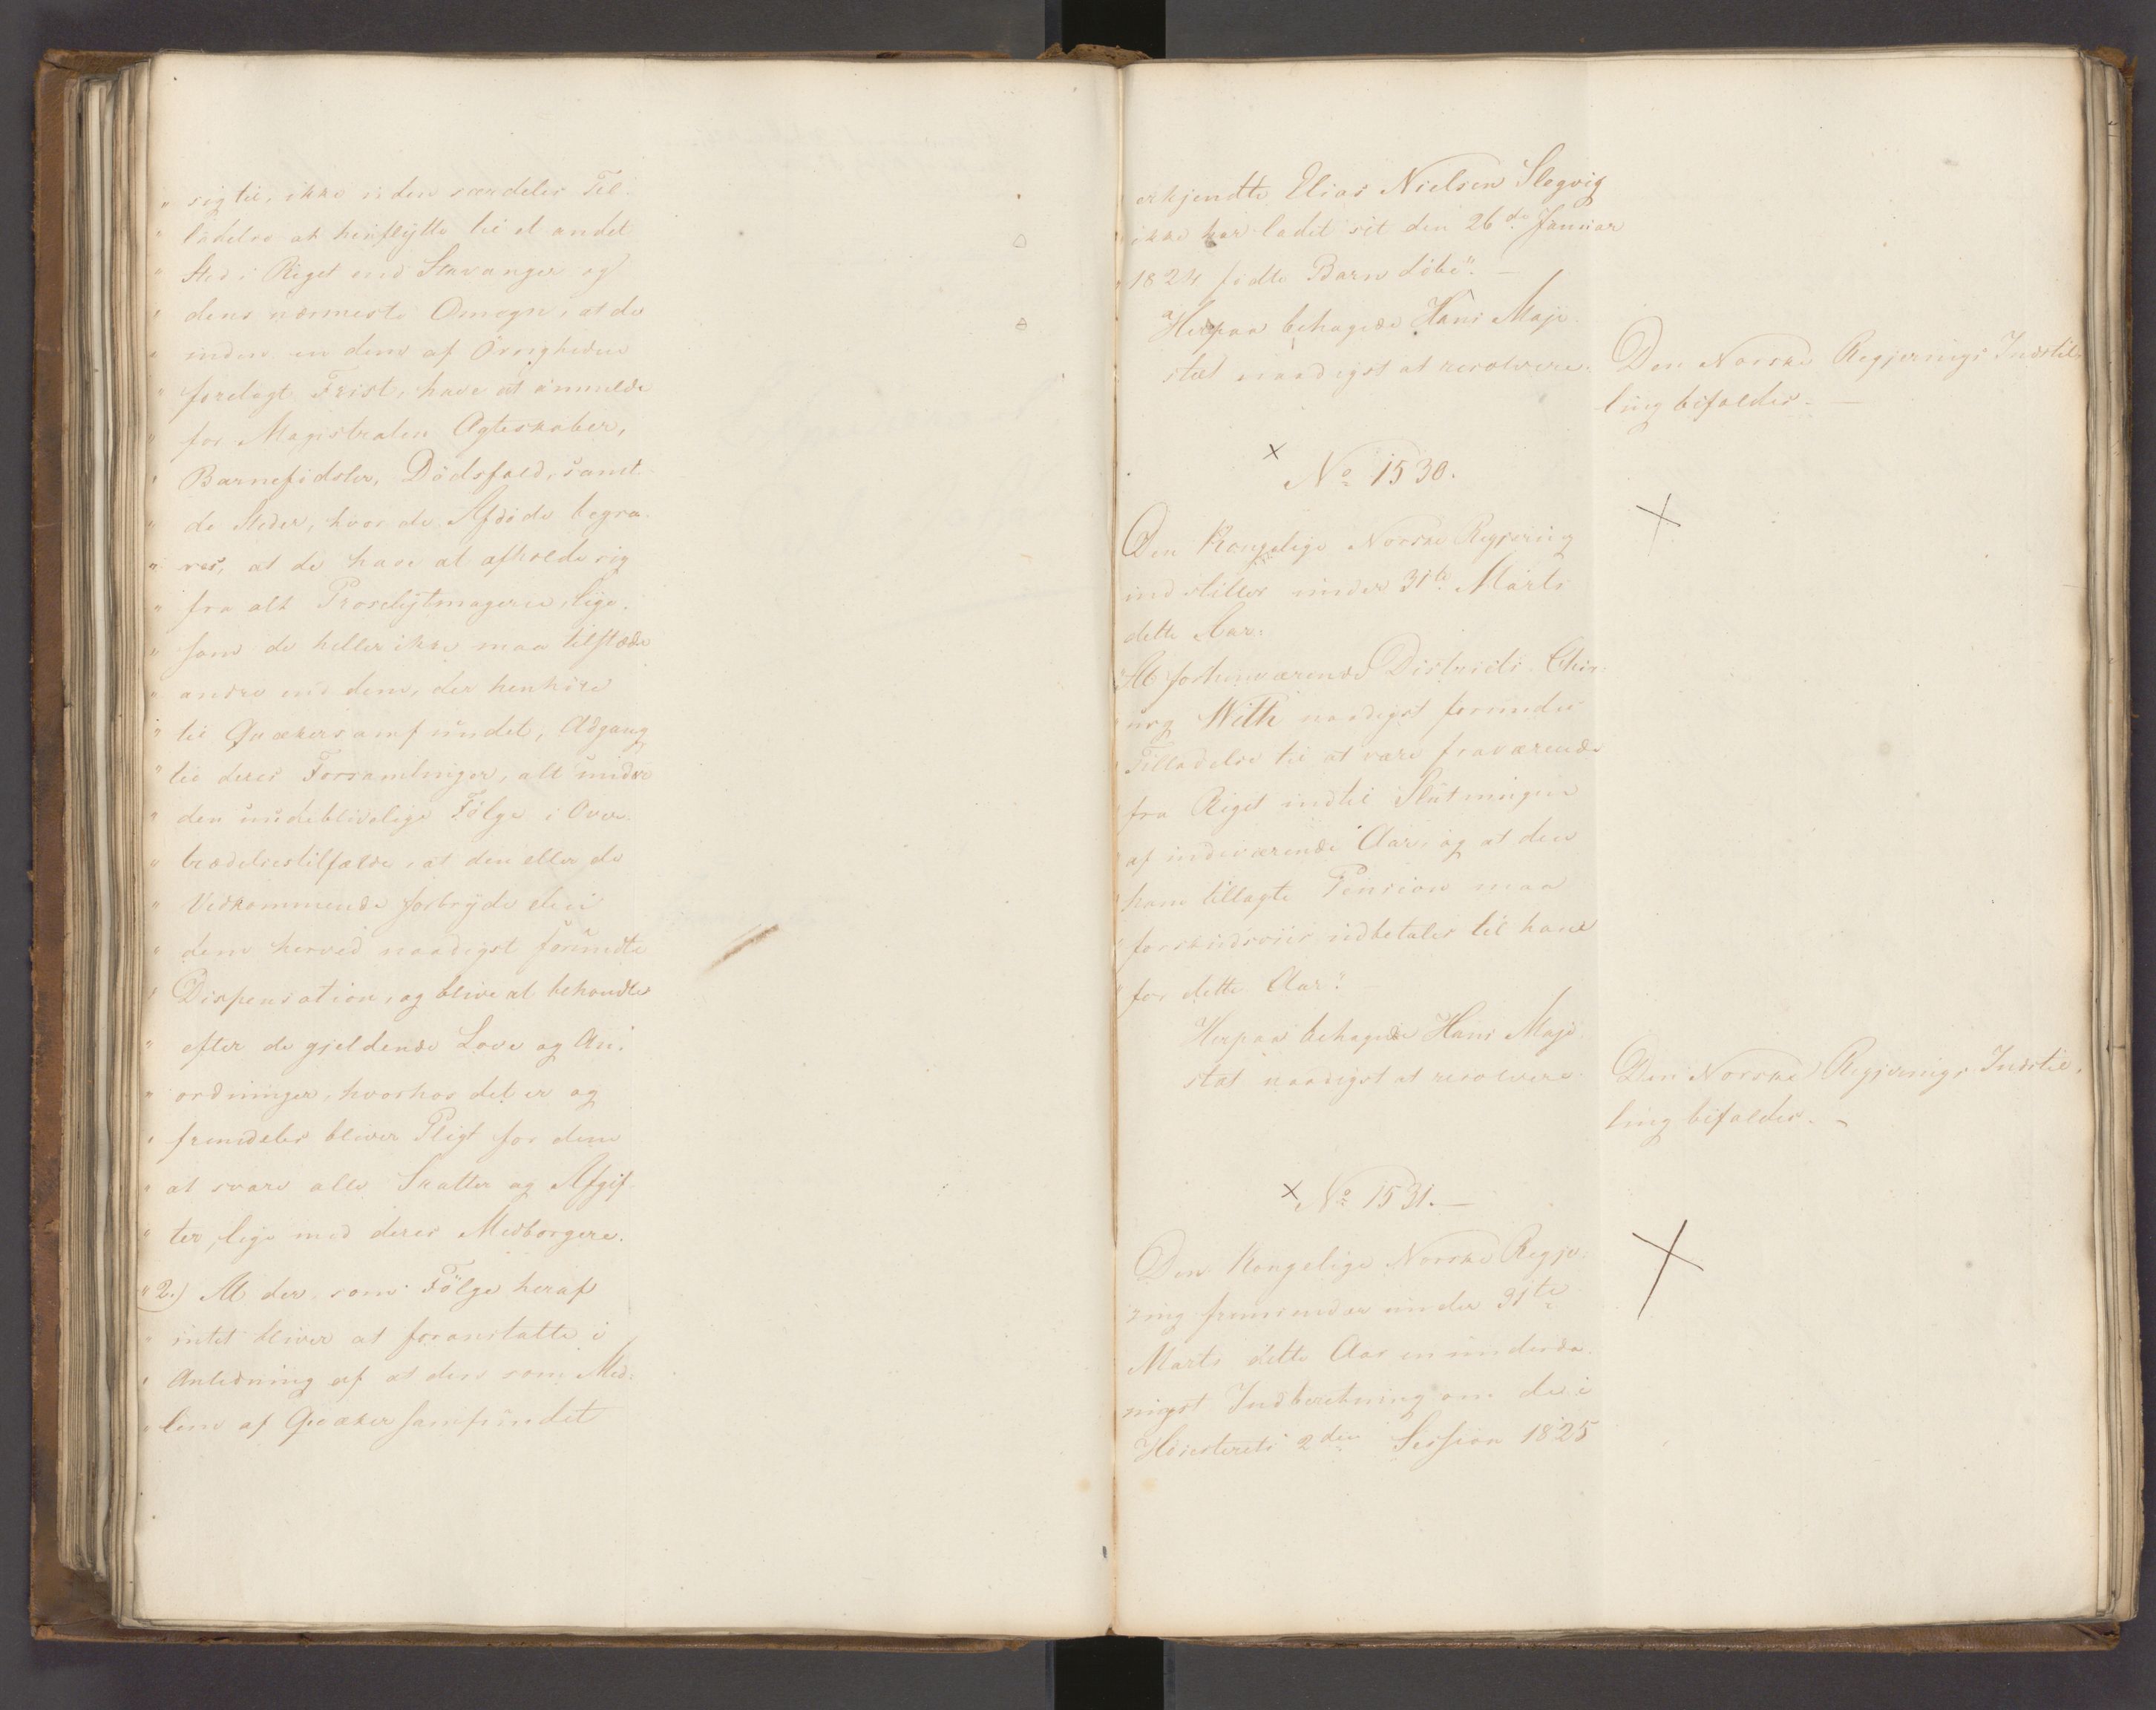 " sig til, ikke uden særdeles Til-
" ladelse at henflytte til et andet
" Sted i Riget end Stavanger og
" dens nærmeste Omegn, at de
" inden en dem af Øvrigheden
" forelagt Frist, have at anmelde
" for Magistraten Ægteskaber,
" Barnefødsler, Dødsfald, samt
" de Steder, hvor de Afdøde begra-
" ves, at de have at afholde sig
" fra alt Proselytmagerie, lige-
" som de heller ikke maa tilstæde
" andre end dem, der henhøre
" til Qvækersamfundet, Adgang
" til deres Forsamlinger, alt under
" den uudeblivelige Følge i Over-
" trædelsestilfælde, at den eller de
" Vedkommende forbryde den
" dem herved naadigst forundte
" Dispensation, og blive at behandle
" efter de gjeldende Love og An-
" ordninger, hvorhos det er og
" fremdeles bliver Pligt for dem
" at svare alle Skatter og Afgif-
" ter, lige med deres Medborgere.
" 2.) At der, som Følge heraf
" intet bliver at foranstalte i
" Anledning af at den som Med-
" lem af Qvækersamfundet
erkjendte Elias Nielsen Slogvig
" ikke har ladet sit den 26de Januar
" 1824 fødte Barn døbe". —
Herpaa behagede Hans Maje-
stæt naadigst at resolvere:
Den Norske Regjerings Indstil-
ling bifaldes. —
× No 1530. ×
Den Kongelige Norske Regjering
indstiller under 31te Marts
dette Aar:
"At forhenværende Districts-Chir-
" urg With naadigst forundes
" Tilladelse til at være fraværende
" fra Riget indtil Slutningen
" af indeværende Aar, og at den
" ham tillagte Pension maa
" forskudsviis udbetales til ham
" for dette Aar". —
Herpaa behagede Hans Maje-
stæt naadigst at resolvere:
Den Norske Regjerings Indstil-
ling bifaldes. —
× No 1531. — ×
Den Kongelige Norske Regje-
ring fremsender under 31te
Marts dette Aar en underda-
nigst Indberetning om de i
Høiesterets 2den Session 1825